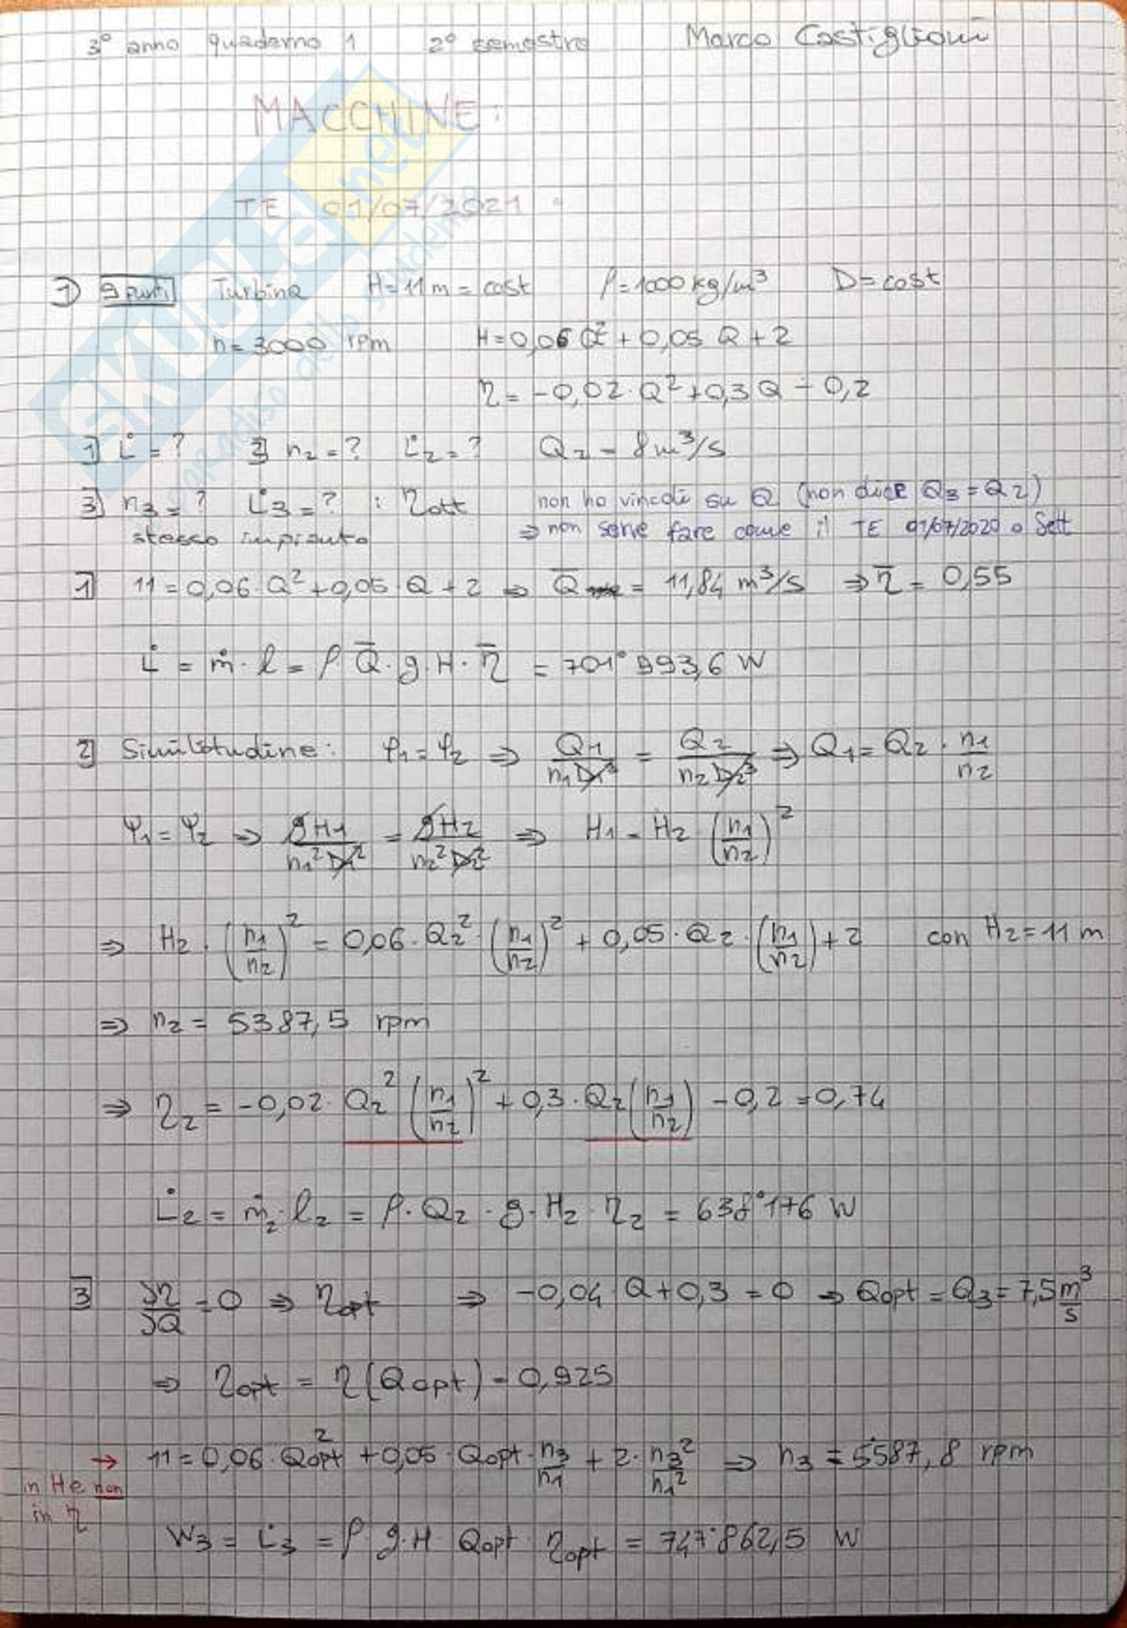 3° anno quaderno 1 2° semestre Marco Castiglioni
MACCHINE:
TE 01/07/2021
1) 9 punti Turbina H=11m = cost ρ=1000 kg/m³ D=cost
n=3000 rpm H=0,06 Q²+0,05 Q+2
η=-0,02·Q²+0,3Q-0,2
1] L̇=? 2] n₂=? L̇₂=? Q₂=8m³/s
3] n₃=? L̇₃=? : ηott non ho vincoli su Q (non dice Q₃=Q₂)
stesso impianto ⇒ non serve fare come il TE 01/07/2020 o Sett
1] 11=0,06·Q²+0,05·Q+2 ⇒ Q̄ = 11,84 m³/s ⇒ η̄ = 0,55
L̇ = ṁ·l = ρ·Q̄·g·H·η̄ = 701°993,6 W
2] Similitudine: φ₁=φ₂ ⇒ Q₁/(n₁D₁³) = Q₂/(n₂D₂³) ⇒ Q₁=Q₂·n₁/n₂
ψ₁=ψ₂ ⇒ gH₁/(n₁²D₁²) = gH₂/(n₂²D₂²) ⇒ H₁=H₂(n₁/n₂)²
⇒ H₂·(n₁/n₂)² = 0,06·Q₂²·(n₁/n₂)² + 0,05·Q₂·(n₁/n₂)+2 con H₂=11 m
⇒ n₂= 5387,5 rpm
⇒ η₂ = -0,02·Q₂²(n₁/n₂)² + 0,3·Q₂(n₁/n₂) -0,2 =0,74
L̇₂ = ṁ₂·l₂ = ρ·Q₂·g·H₂·η₂ = 638°176 W
3] ∂η/∂Q =0 ⇒ ηopt ⇒ -0,04 Q+0,3=0 ⇒ Qopt = Q₃=7,5 m³/s
⇒ ηopt = η(Qopt) = 0,925
→ 11=0,06·Qopt²+0,05·Qopt·n₃/n₁ + 2·n₃²/n₁² ⇒ n₃ = 5587,8 rpm
in H e non
in η
W₃ = L̇₃ = ρ g·H Qopt ηopt = 747°862,5 W
SKUOLA.net